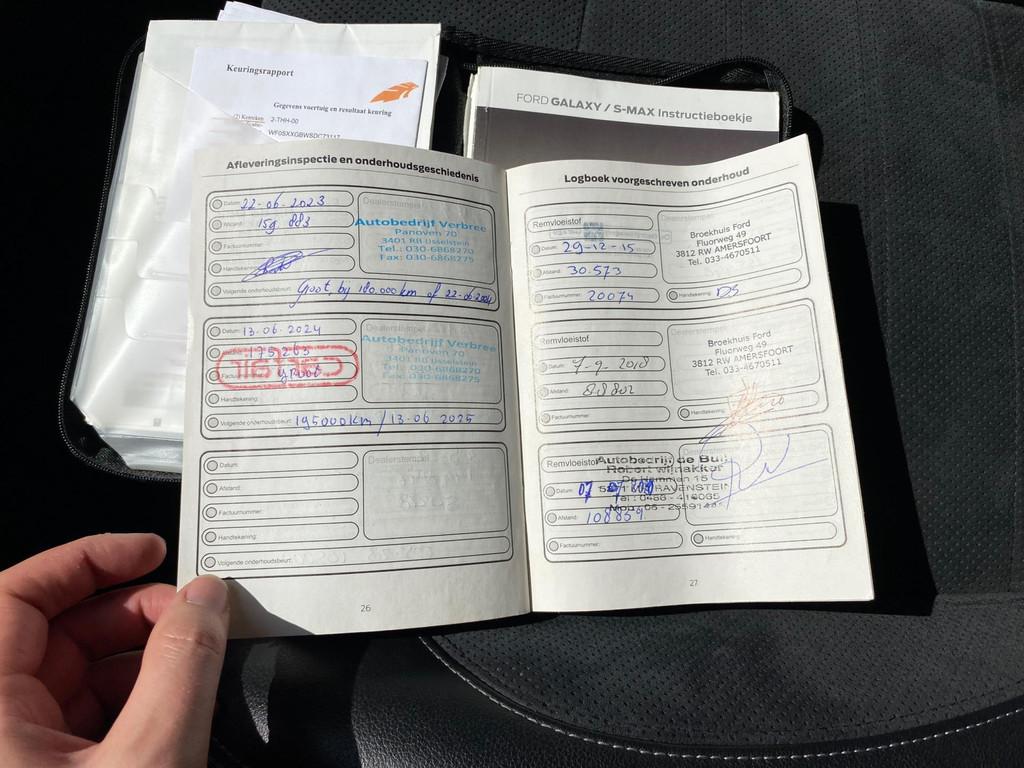 Keuringsrapport
Gegevens voertuig en resultaat keuring
(2) Kenteken 2-THH-00
FORD GALAXY / S-MAX Instructieboekje
Afleveringsinspectie en onderhoudsgeschiedenis
Datum: 22-06-2023
Afstand: 159.883
Factuurnummer:
Handtekening:
Volgende onderhoudsbeurt: Groot, bij 180.000 km of 22-06-2024
Dealerstempel:
Autobedrijf Verbree
Panoven 70
3401 RB IJsselstein
Tel.: 030-6868270
Fax: 030-6868275
Datum: 13-06-2024
175263
Groot
Handtekening:
Volgende onderhoudsbeurt: 195000km / 13-06 2025
Dealerstempel:
Autobedrijf Verbree
Panoven 70
3401 RB IJsselstein
Tel.: 030-6868270
Fax: 030-6868275
Datum:
Afstand:
Factuurnummer:
Handtekening:
Volgende onderhoudsbeurt:
Dealerstempel:
26
Logboek voorgeschreven onderhoud
Remvloeistof
Datum: 29-12-15
Afstand: 30.573
Factuurnummer: 20074
Dealerstempel:
Broekhuis Ford
Fluorweg 49
3812 RW AMERSFOORT
Tel. 033-4670511
Handtekening: DS
Remvloeistof
Datum: 7-9-2018
Afstand:
Factuurnummer:
Dealerstempel:
Broekhuis Ford
Fluorweg 49
3812 RW AMERSFOORT
Tel. 033-4670511
Handtekening:
Remvloeistof
Datum: 07
Afstand: 108859
Factuurnummer:
Autobedrijf de
Robert Wijnakker
RAVENSTEIN
Handtekening:
27